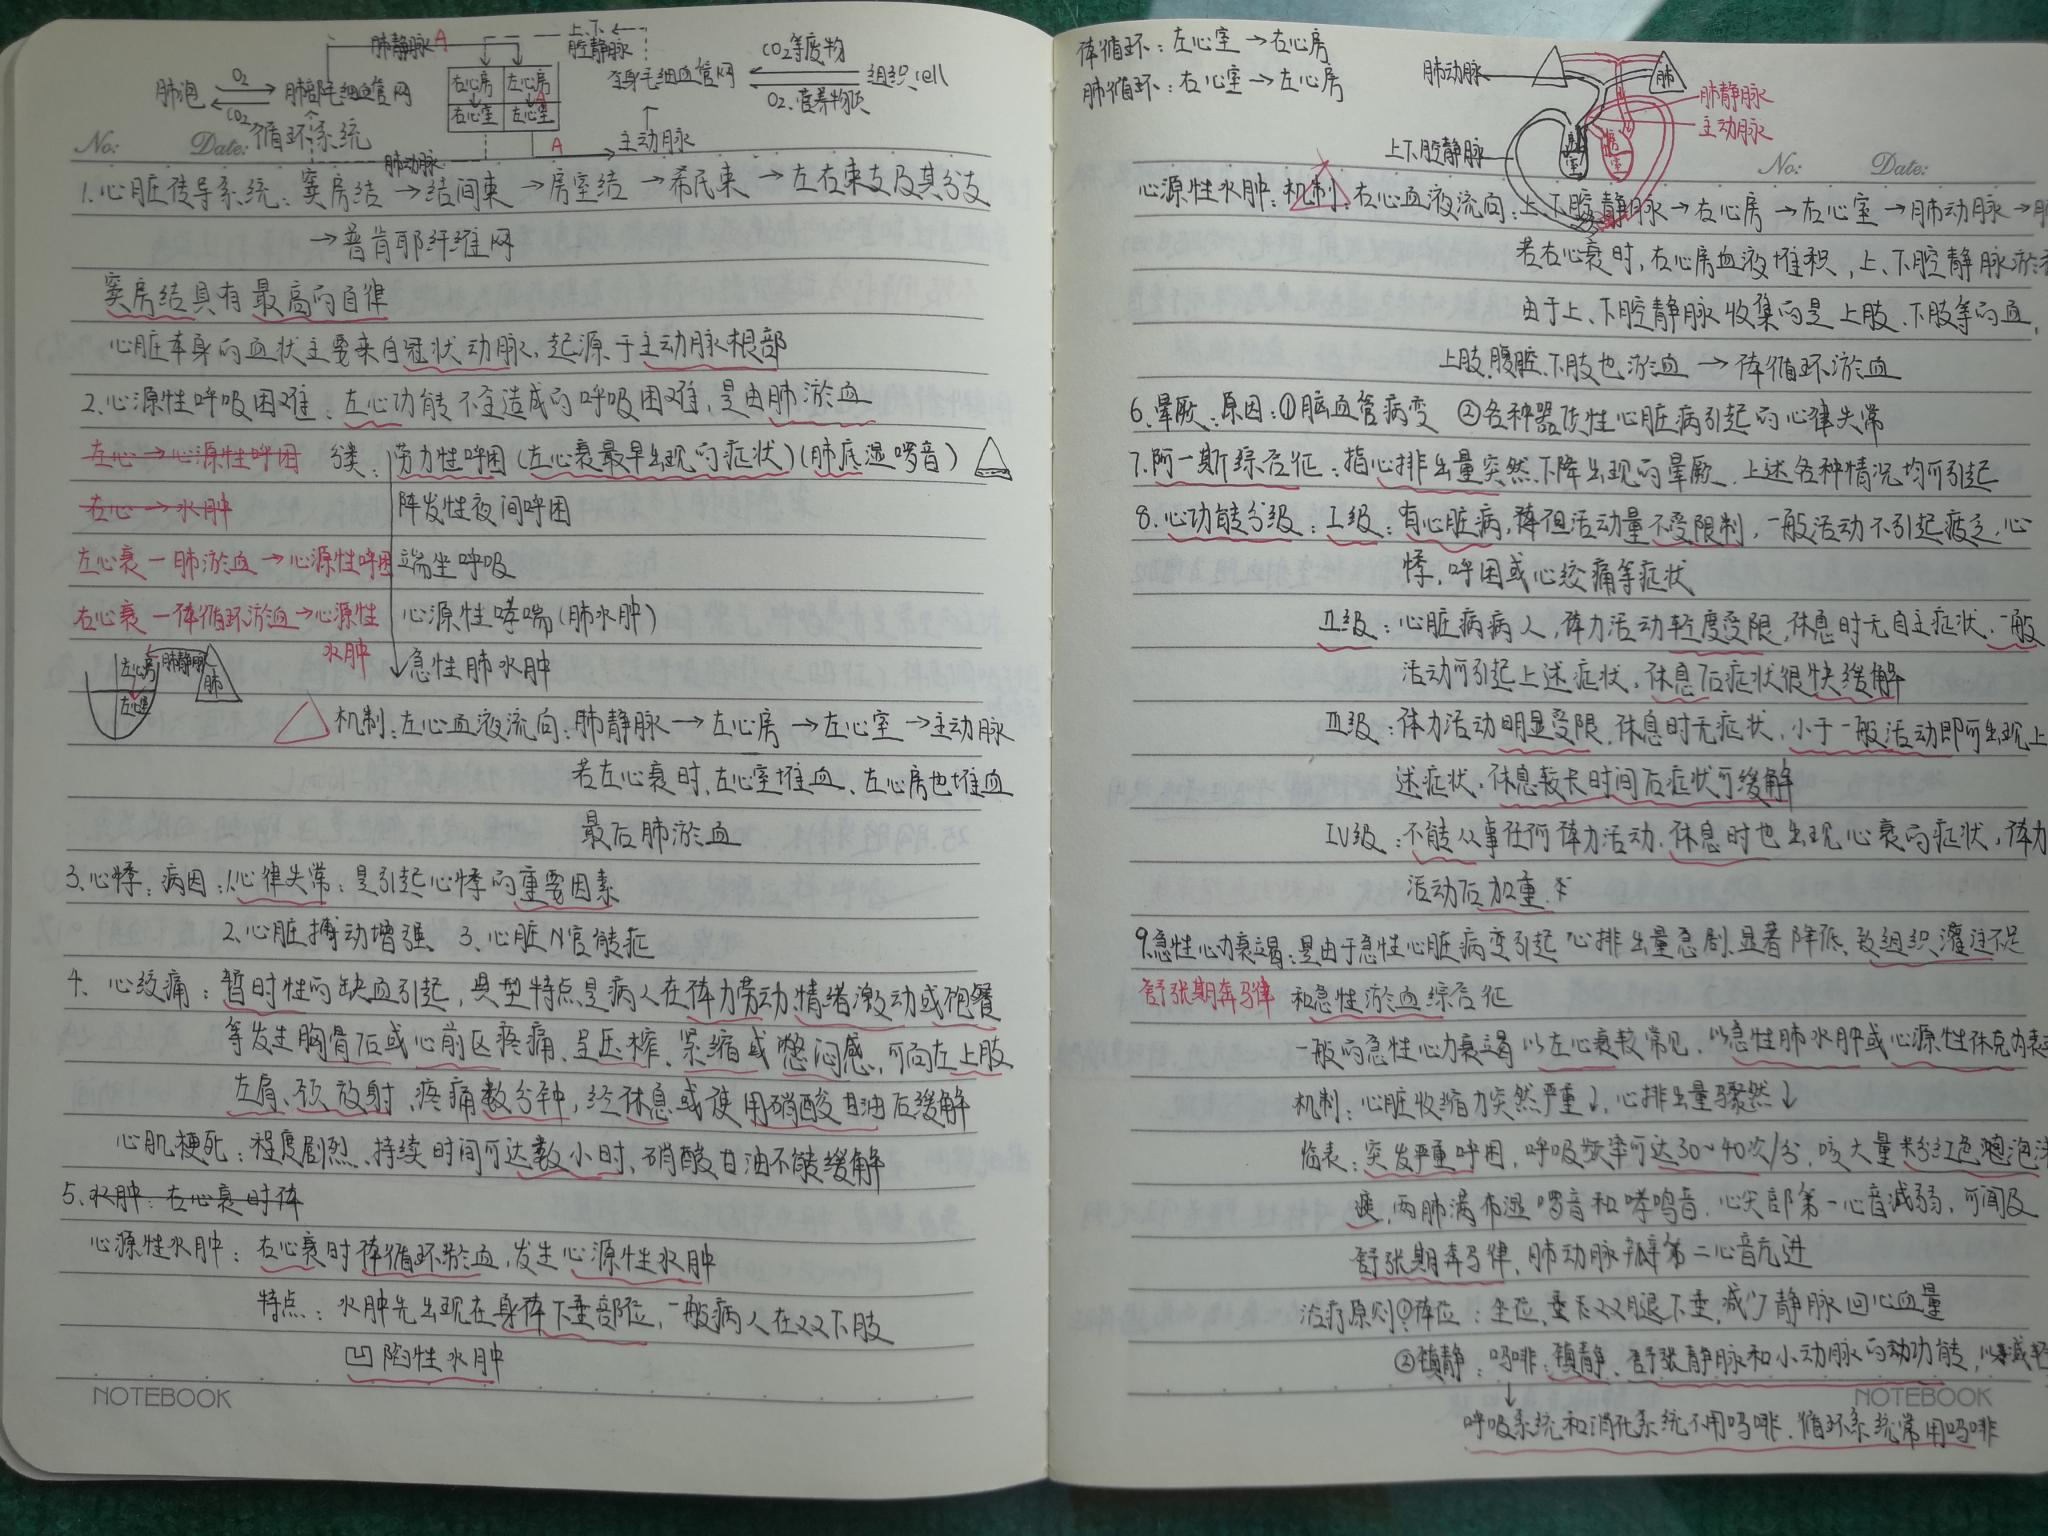 肺静脉 A
上、下
腔静脉
CO₂等废物
肺泡 O₂ CO₂ 肺部毛细血管网
右心房 左心房
右心室 左心室
A
全身毛细血管网
组织cell
O₂、营养物质
No: Date: 循环系统
肺动脉 A 主动脉
1.心脏传导系统:窦房结→结间束→房室结→希氏束→左右束支及其分支
→普肯耶纤维网
窦房结具有最高的自律
心脏本身的血状主要来自冠状动脉,起源于主动脉根部
2.心源性呼吸困难:左心功能不全造成的呼吸困难,是由肺淤血
左心→心源性呼困 分类:劳力性呼困(左心衰最早出现的症状)(肺底湿啰音)
右心→水肿 阵发性夜间呼困
左心衰—肺淤血→心源性呼困 端坐呼吸
右心衰—体循环淤血→心源性 心源性哮喘(肺水肿)
水肿 急性肺水肿
左心房 肺静脉 肺
左心室
机制:左心血液流向:肺静脉→左心房→左心室→主动脉
若左心衰时,左心室堆血、左心房也堆血
最后肺淤血
3.心悸:病因:1.心律失常:是引起心悸的重要因素
2.心脏搏动增强、3.心脏N官能症
4、心绞痛:暂时性的缺血引起,典型特点是病人在体力劳动、情绪激动或饱餐
等发生胸骨后或心前区疼痛、呈压榨、紧缩或憋闷感,可向左上肢
左肩、颈放射、疼痛数分钟,经休息或使用硝酸甘油后缓解
心肌梗死:程度剧烈、持续时间可达数小时、硝酸甘油不能缓解
5、水肿:右心衰时体
心源性水肿:右心衰时体循环淤血,发生心源性水肿
特点:水肿先出现在身体下垂部位,一般病人在双下肢
凹陷性水肿
NOTEBOOK
体循环:左心室→右心房
肺循环:右心室→左心房
肺动脉
肺
肺静脉
主动脉
上下腔静脉
房 室 房 室
No: Date:
心源性水肿:机制:右心血液流向:上、下腔静脉→右心房→右心室→肺动脉→
若右心衰时,右心房血液堆积,上、下腔静脉淤
由于上、下腔静脉收集的是上肢、下肢等的血,
上肢、腹腔、下肢也淤血→体循环淤血
6、晕厥:原因:①脑血管病变 ②各种器质性心脏病引起的心律失常
7.阿—斯综合征:指心排出量突然下降出现的晕厥、上述各种情况均可引起
8.心功能分级:Ⅰ级:有心脏病,体但活动量不受限制,一般活动不引起疲乏、心
悸,呼困或心绞痛等症状
Ⅱ级:心脏病病人,体力活动轻度受限,休息时无自主症状、一般
活动可引起上述症状、休息后症状很快缓解
Ⅲ级:体力活动明显受限,休息时无症状,小于一般活动即可出现上
述症状、休息较长时间后症状可缓解
Ⅳ级:不能从事任何体力活动、休息时也出现心衰的症状,体力
活动后加重
9.急性心力衰竭:是由于急性心脏病变引起 心排出量急剧、显著降低、致组织灌注不足
舒张期奔马律 和急性淤血综合征
一般的急性心力衰竭以左心衰较常见,以急性肺水肿或心源性休克为表
机制:心脏收缩力突然严重↓,心排出量骤然↓
临表:突发严重呼困,呼吸频率可达30~40次/分,咳大量粉红色泡沫
痰,两肺满布湿啰音和哮鸣音,心尖部第一心音减弱,可闻及
舒张期奔马律,肺动脉瓣第二心音亢进
治疗原则:①体位:坐位,双腿下垂,减少静脉回心血量
②镇静:吗啡:镇静、舒张静脉和小动脉的动功能,以减
NOTEBOOK
呼吸系统和消化系统不用吗啡、循环系统常用吗啡